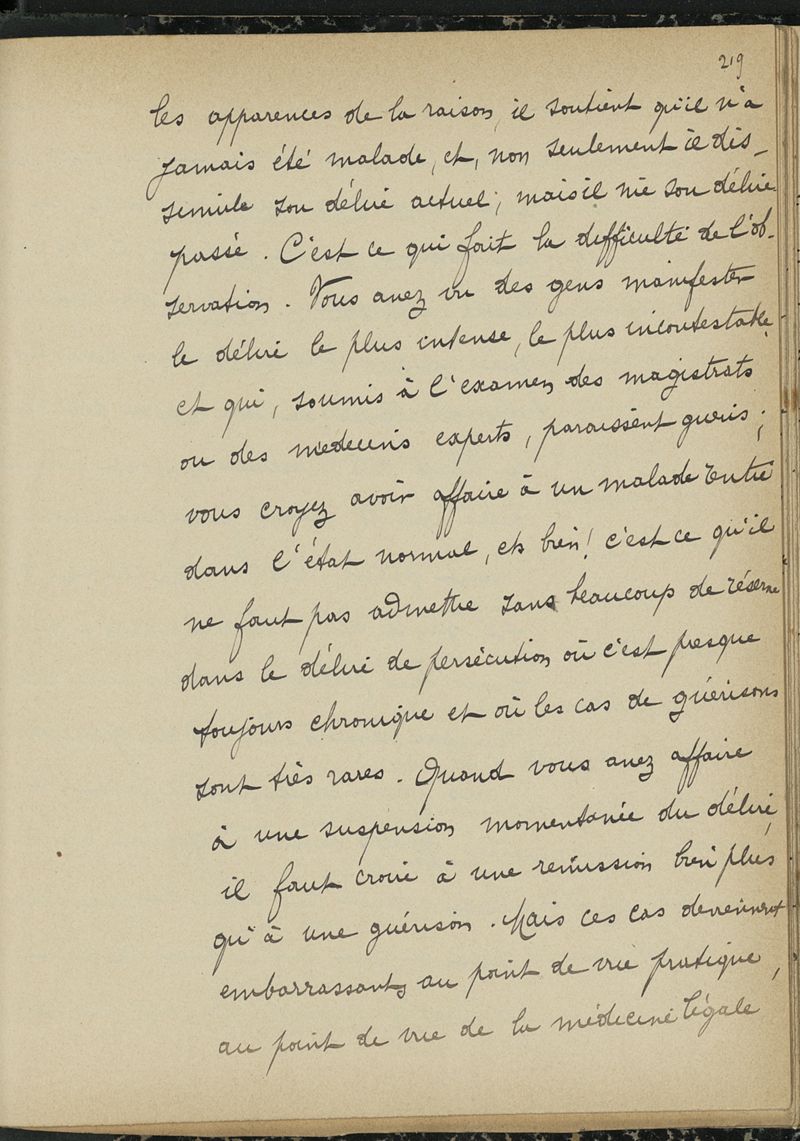 219
les apparences de la raison, il soutient qu'il n'a
jamais été malade, et, non seulement il dis_
simule son délire actuel ; mais il nie son délire
passé . C'est ce qui fait la difficulté de l'ob_
servation . Vous avez vu des gens manifester
le délire le plus intense, le plus incontestable,
et qui, soumis à l'examen des magistrats
ou des médecins experts, paraissent guéris ;
vous croyez avoir affaire à un malade rentré
dans l'état normal, eh bien! c'est ce qu'il
ne faut pas admettre sans beaucoup de réserve
dans le délire de persécution où c'est presque
toujours chronique et où les cas de guérisons
sont très rares . Quand vous avez affaire
à une suspension momentanée du délire,
il faut croire à une rémission bien plus
qu'à une guérison . Mais ces cas deviennent
embarrassants au point de vue pratique,
au point de vue de la médecine légale